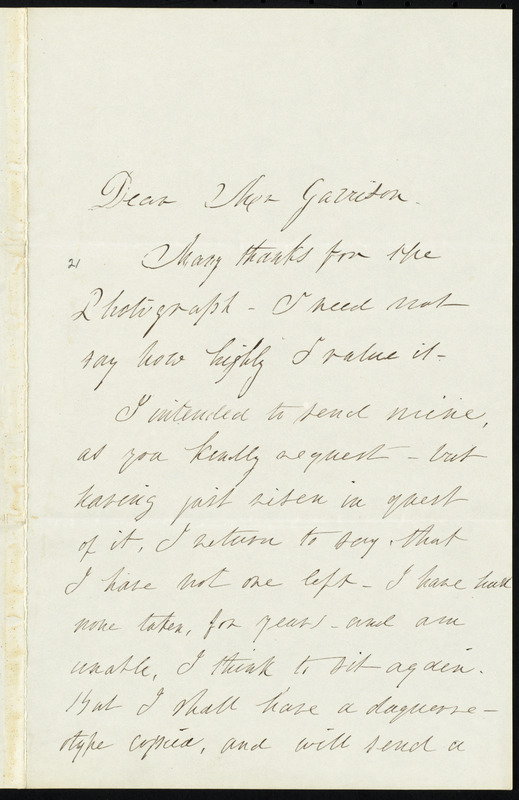 Dear Mr Garrison.
21 Many thanks for the
Photograph - I need not
say how highly I value it -
I intended to send mine,
as you kindly request - but
having just risen in quest
of it, I return to say, that
I have not one left - I have had
none taken, for years - and am
unable, I think to sit again.
But I shall have a daguerre-
otype copied, and will send a